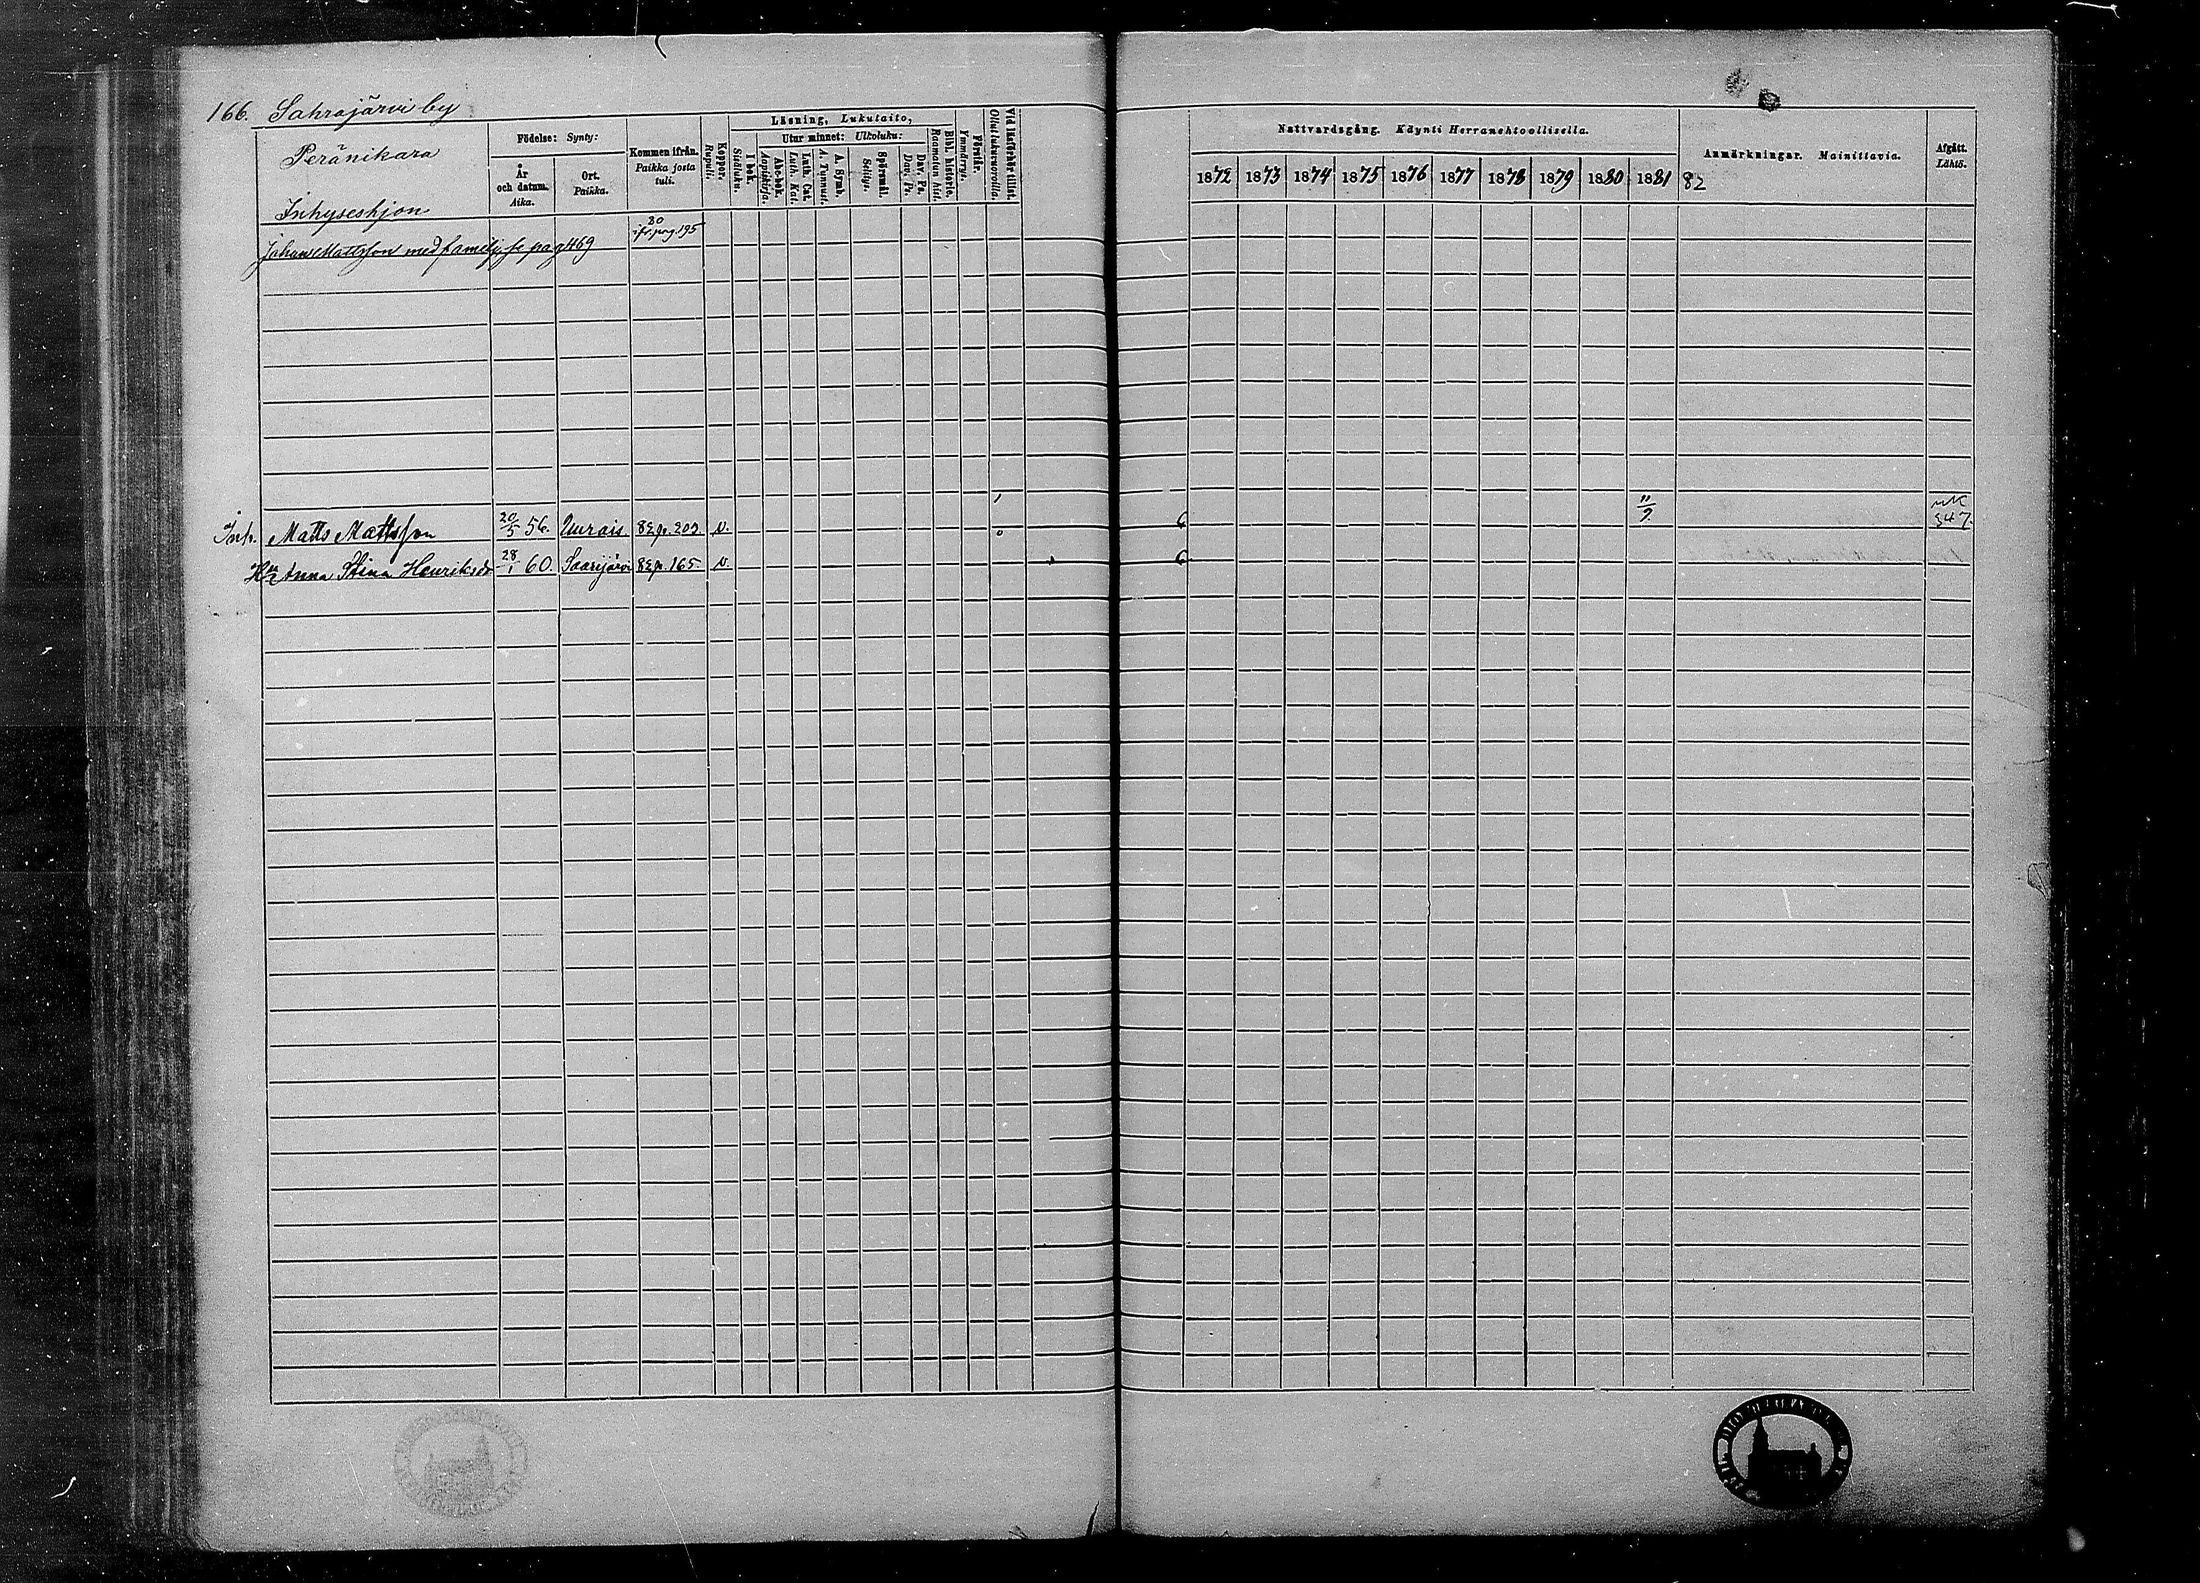 166. Sahrajärvi by
Peränikara
Inhyseshjon
Födelse: Synty:
År och datum. Aika.
Ort. Paikka.
Kommen ifrån. Paikka josta tuli.
Koppor. Rupuli.
Läsning, Lukutaito,
Sisäluku. I bok.
Utur minnet: Ulkoluku:
Aapiskirja. Abc-bok.
Luth. Kat. Luth. Cat.
A. Tunnust. A. Symb.
Selitys. Spörsmål.
Davi. Ps. Dav. Ps.
Raamatun hist. Bibl. historie.
Ymmärrys. Förstår.
Ollut lukuvuoroilla. Vid läsförhör tillst.
Nattvardsgång. Käynti Herranehtoollisella.
1872 1873 1874 1875 1876 1877 1878 1879 1880 1881 82
Anmärkningar. Mainittavia.
Afgått. Lähtö.
Johan Mattsson med familj, se pag 469 80 ifr. pag. 195
Inh. Matts Mattsson 20/5 56. Uurais 82 p. 203. v. 6 11/9 347.
Hu Anna Stina Henriksdr 28/1 60. Saarijärvi 82 p. 165 v. 6